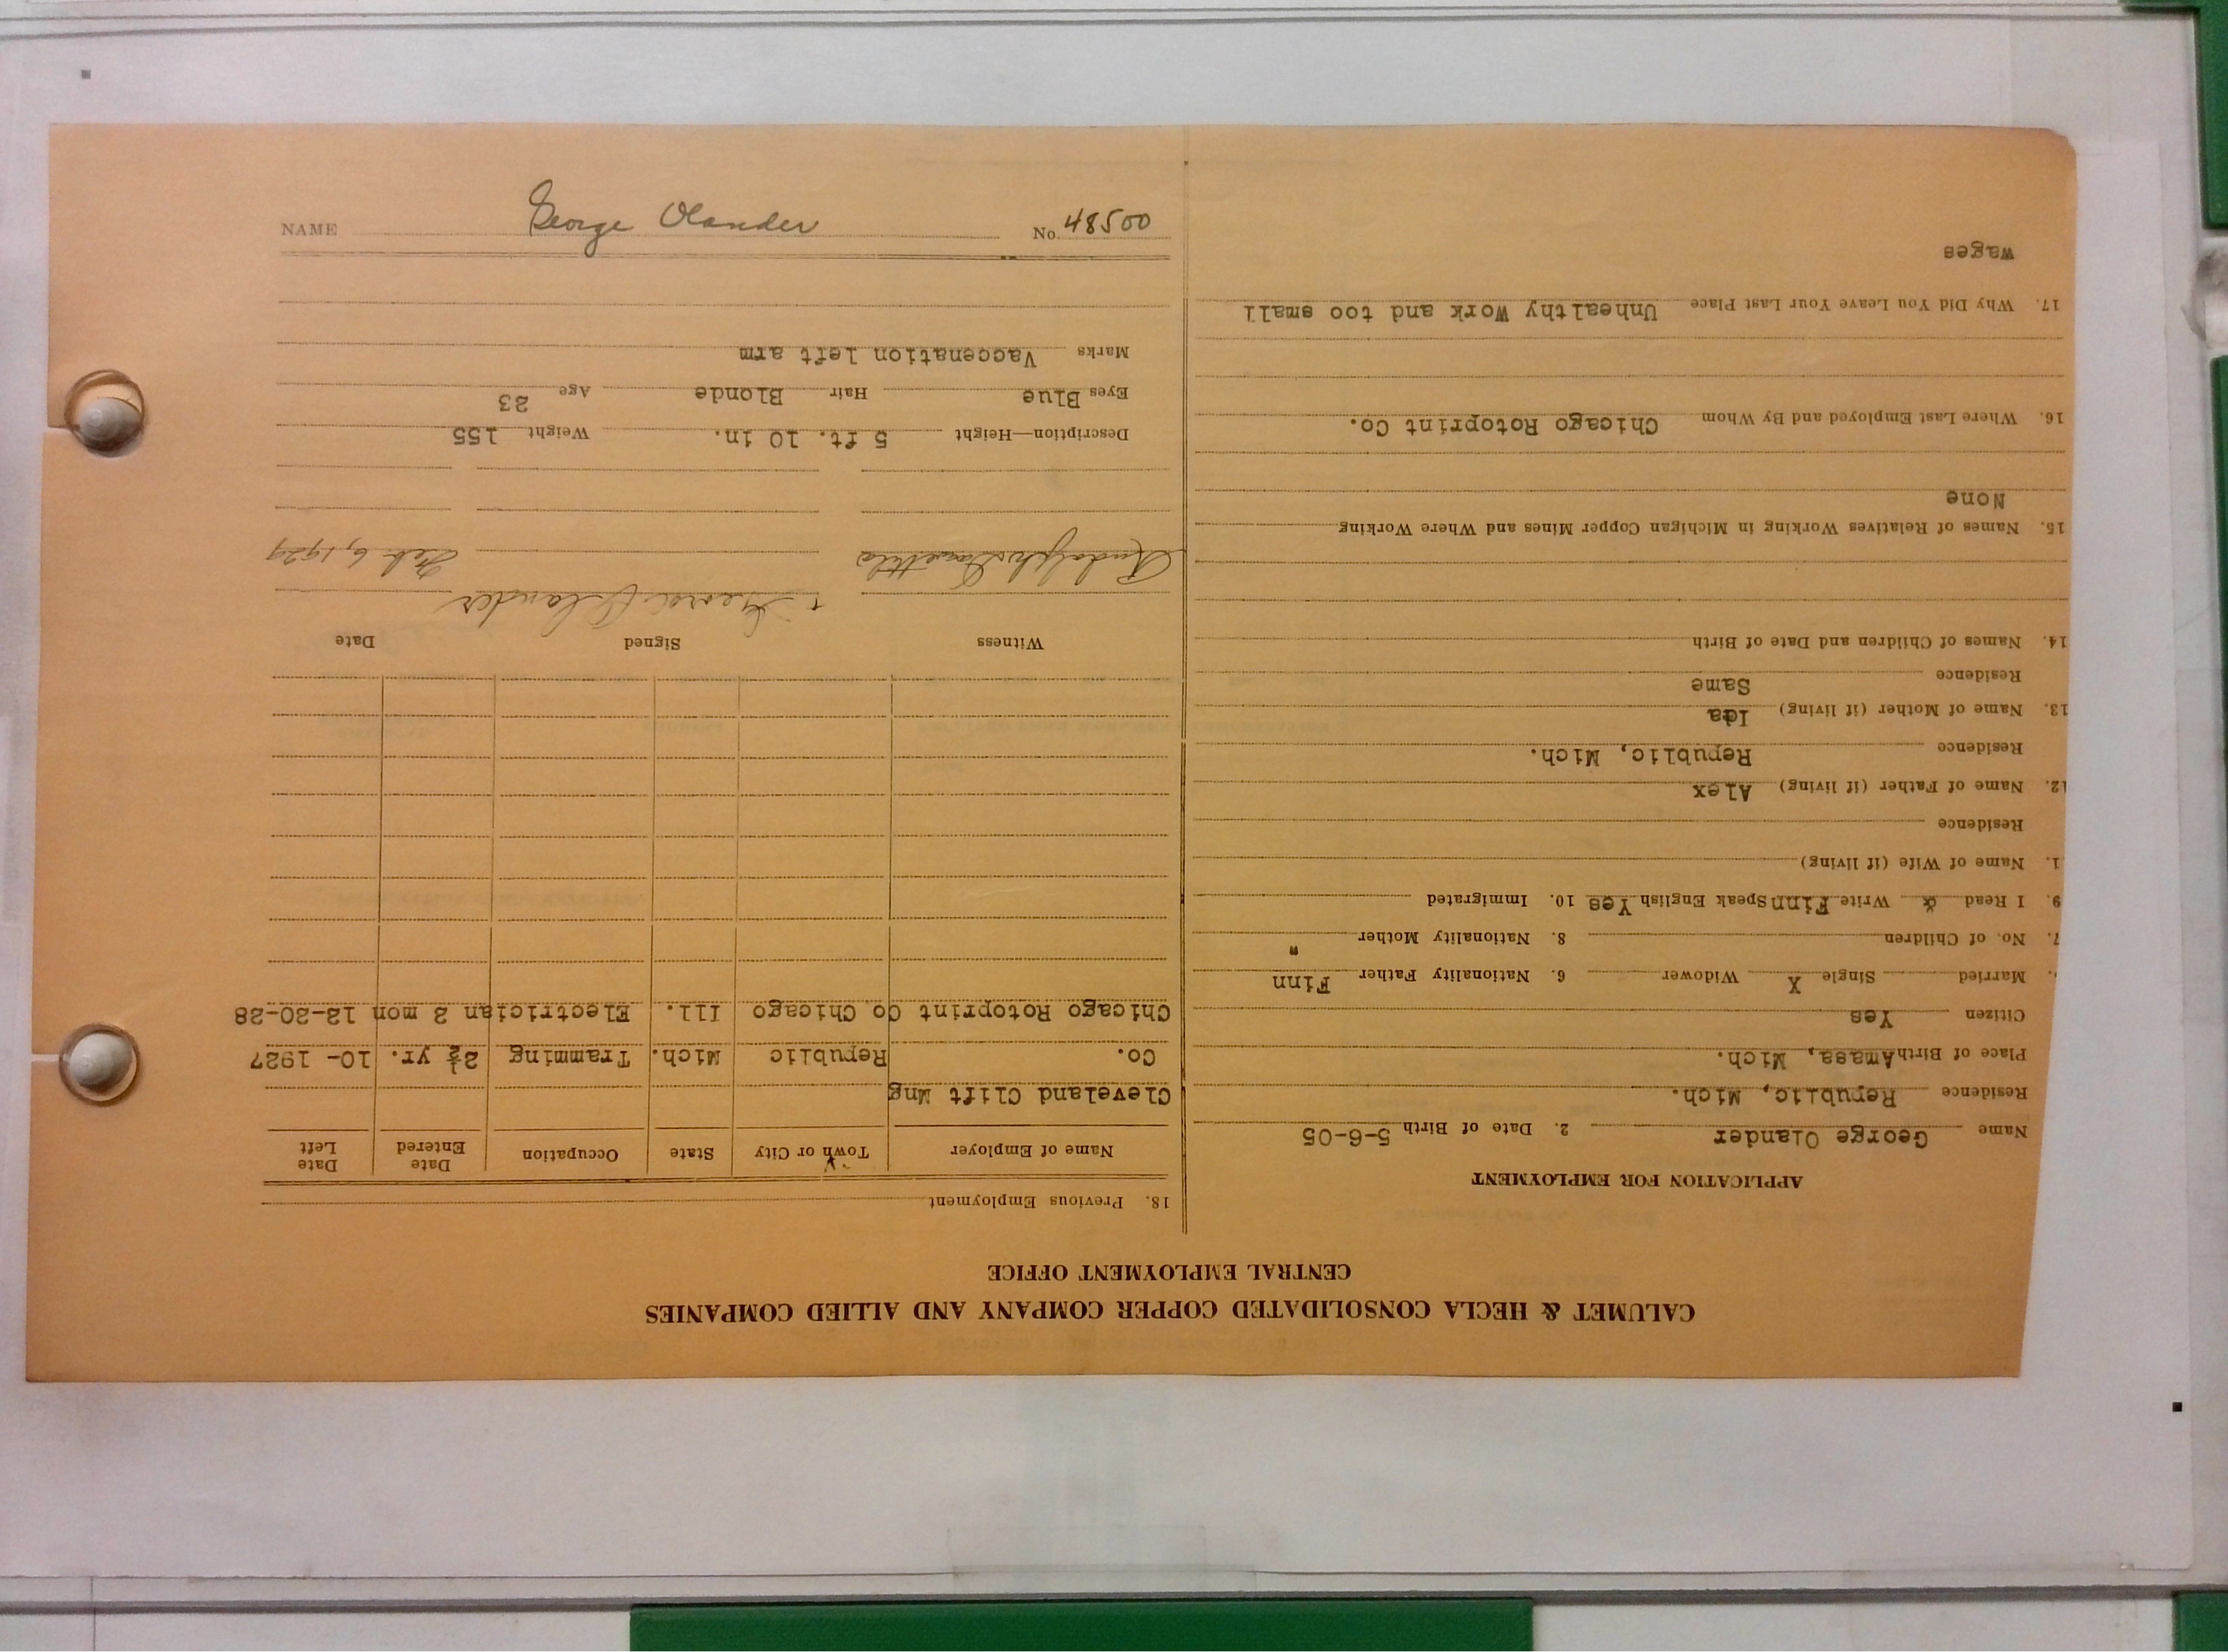 CALUMET & HECLA CONSOLIDATED COPPER COMPANY AND ALLIED COMPANIES
CENTRAL EMPLOYMENT OFFICE
APPLICATION FOR EMPLOYMENT
Name George Olander 2. Date of Birth 5-6-05
Residence Republic, Mich.
Place of Birth Amasa, Mich.
Citizen Yes
Married Single X Widower 6. Nationality Father Finn
7. No. of Children 8. Nationality Mother "
9. I Read & Write Finn Speak English Yes 10. Immigrated
1. Name of Wife (if living)
Residence
12. Name of Father (if living) Alex
Residence Republic, Mich.
13. Name of Mother (if living) Ida
Residence Same
14. Names of Children and Date of Birth
15. Names of Relatives Working in Michigan Copper Mines and Where Working
None
16. Where Last Employed and By Whom Chicago Rotoprint Co.
17. Why Did You Leave Your Last Place Unhealthy work and too small
wages
18. Previous Employment
Name of Employer Town or City State Occupation Date Entered Date Left
Cleveland Clift Mng
Co. Republic Mich. Tramming 2½ yr. 10- 1927
Chicago Rotoprint Co Chicago Ill. Electrician 2 mon 12-20-28
Witness Signed Date
George Olander
Rudolph Feb 6, 1929
Description—Height 5 ft. 10 in. Weight 155
Eyes Blue Hair Blonde Age 23
Marks Vaccenation left arm
NAME George Olander No. 48500